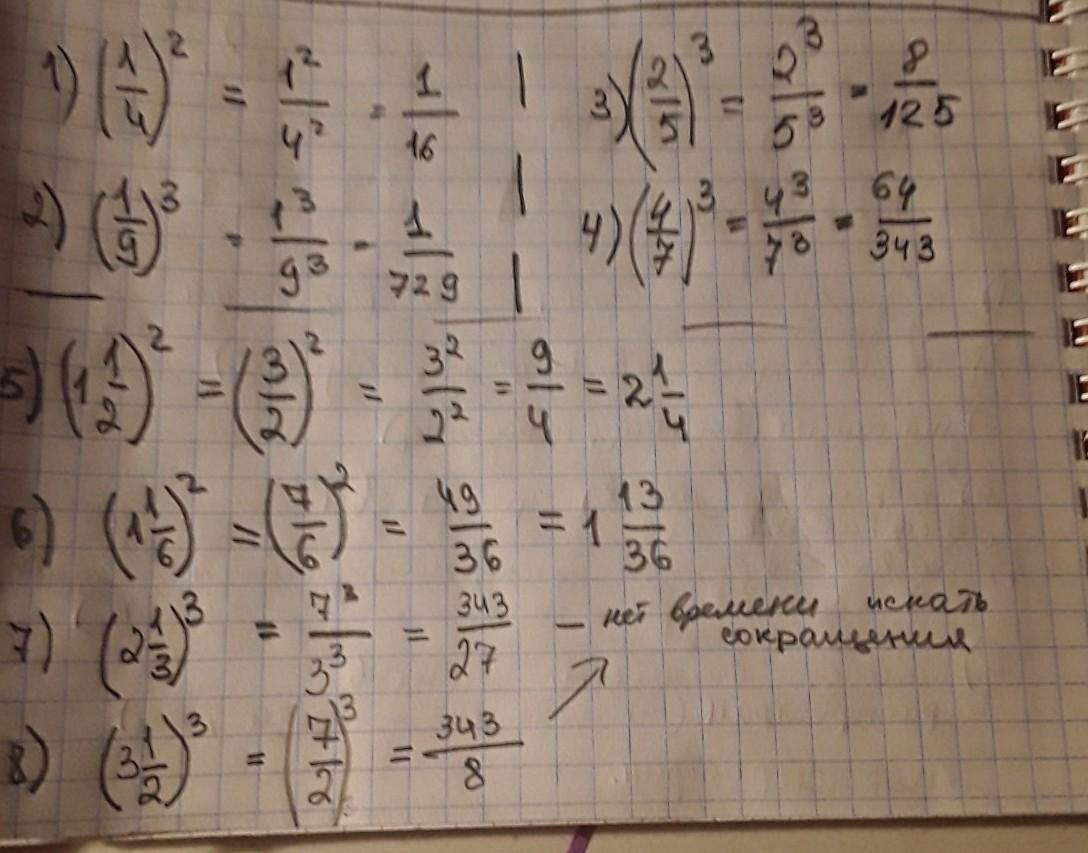 1) (1/4)² = 1²/4² = 1/16
2) (1/9)³ = 1³/9³ = 1/729
3) (2/5)³ = 2³/5³ = 8/125
4) (4/7)³ = 4³/7³ = 64/343
5) (1 1/2)² = (3/2)² = 3²/2² = 9/4 = 2 1/4
6) (1 1/6)² = (7/6)² = 49/36 = 1 13/36
7) (2 1/3)³ = 7³/3³ = 343/27 – нет времени искать
сокращения
8) (3 1/2)³ = (7/2)³ = 343/8